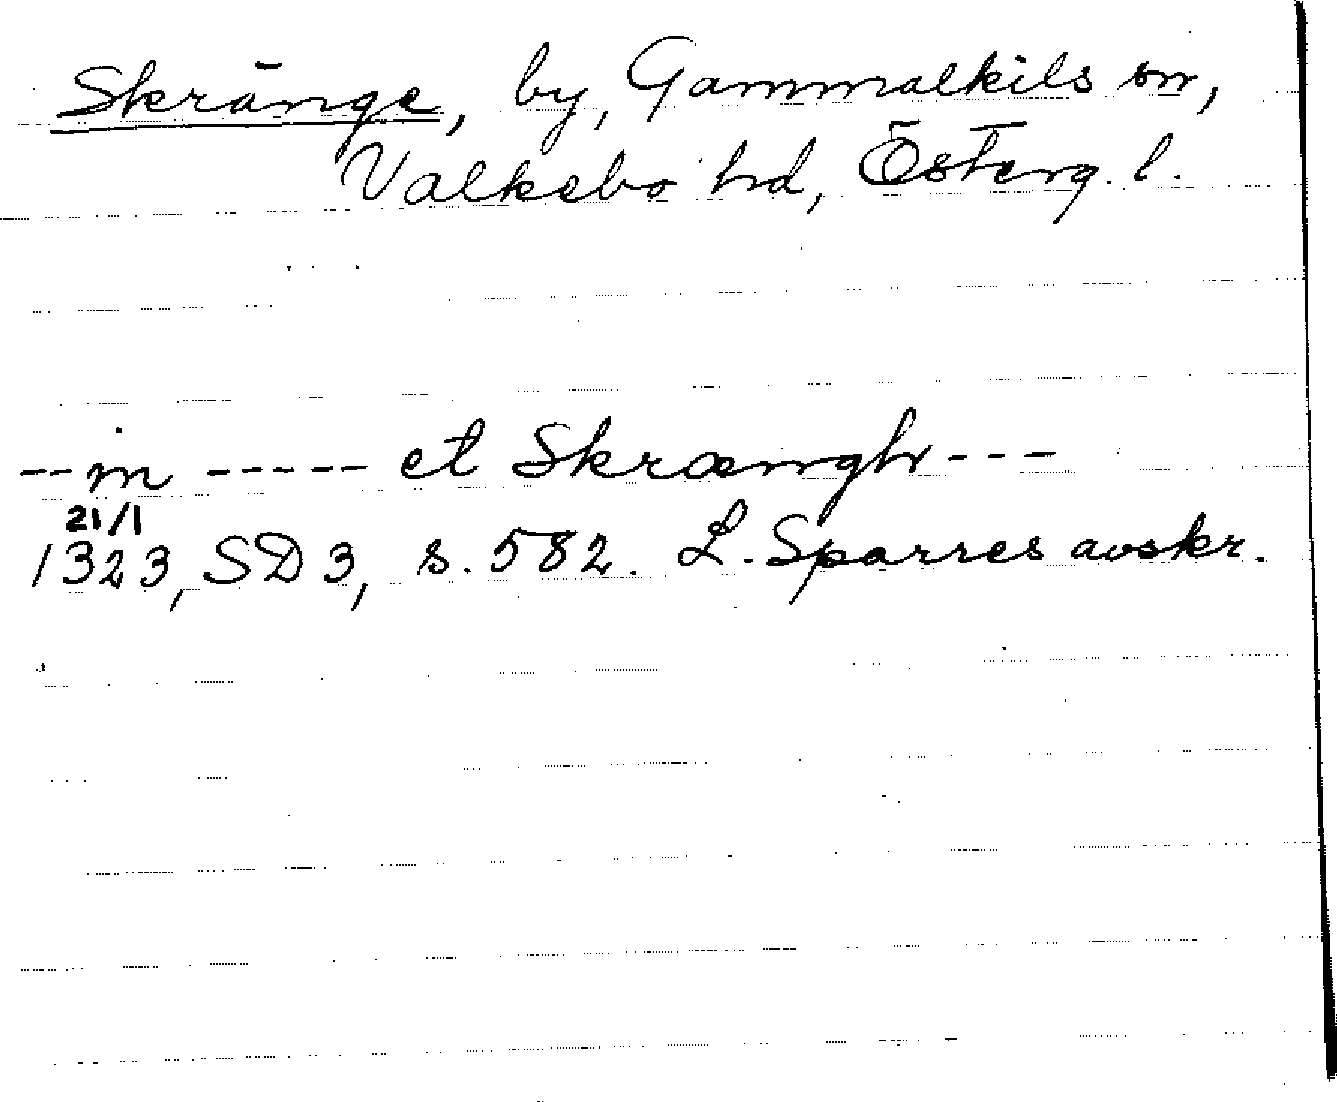 Skränge, by, Gammalkils sn,
Valkebo hd, Österg. l.
-- in ----- et Skrængh ---
21/1
1323, SD 3, s. 582. L. Sparres avskr.